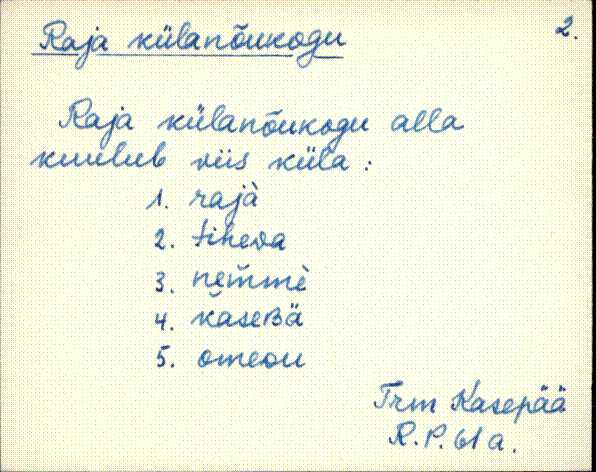 Raja külanõukogu
2.
Raja külanõukogu alla
kuulub viis küla:
1. rajà
2. tiheda
3. nem̆mè
4. kaseʙä
5. omedu
Trm Kasepää
R.P. 61 a.